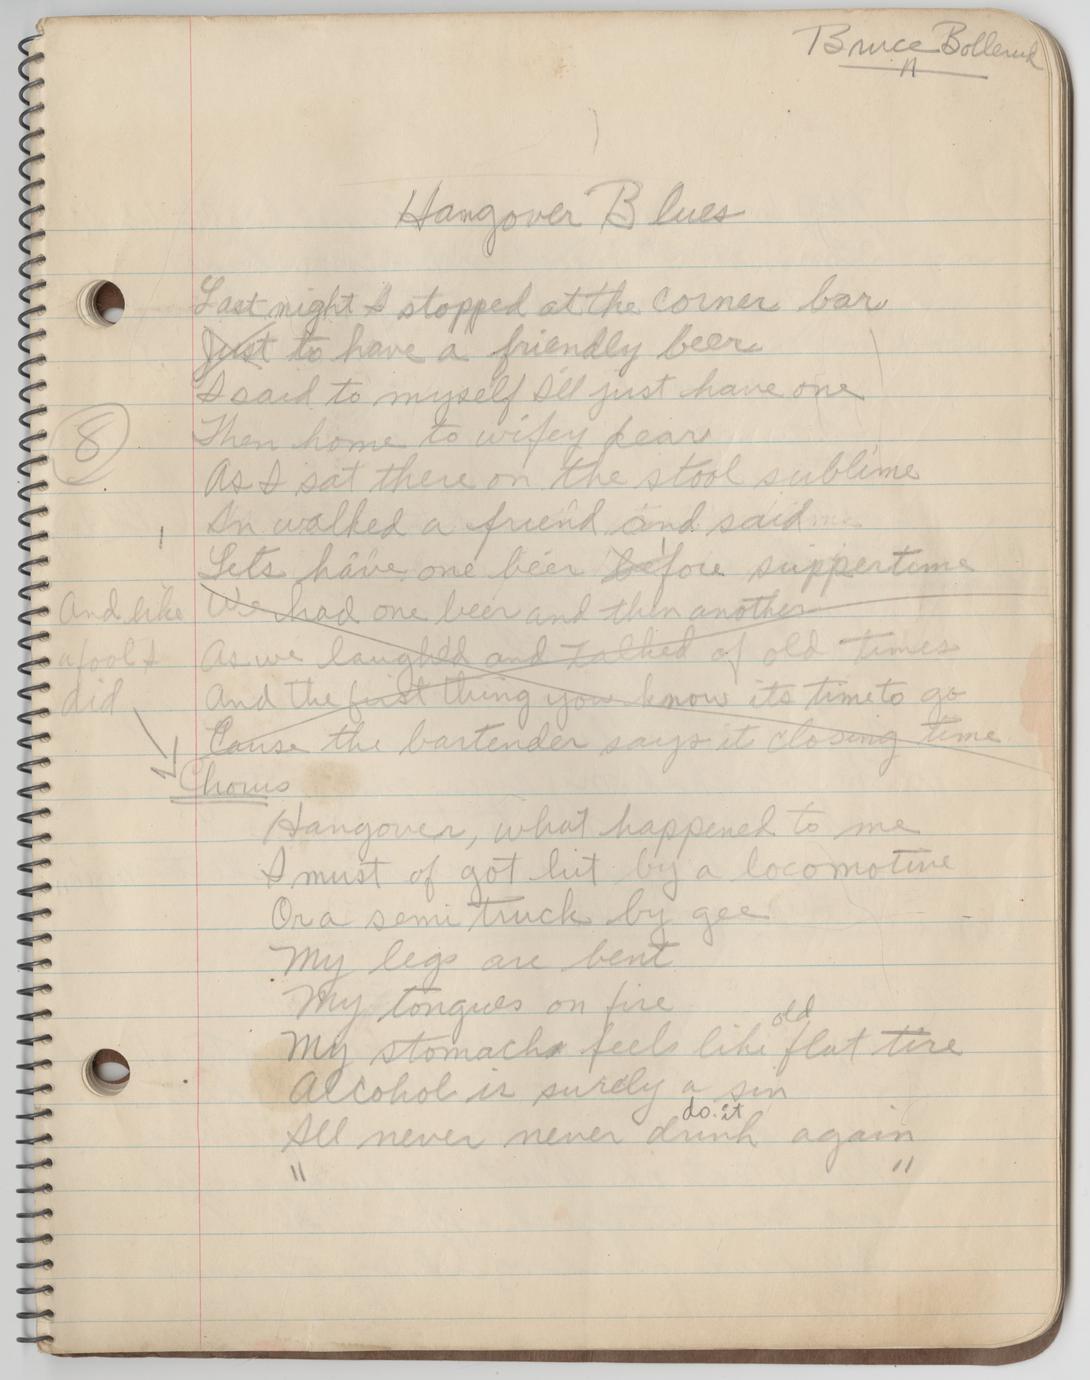 Bruce Bollerud
A
Hangover Blues
Last night I stopped at the corner bar
Just to have a friendly beer
I said to myself I'll just have one
8
Then home to wifey dear
As I sat there on the stool sublime
In walked a friend and said
Lets have one beer before suppertime
And like
a fool I
did
We had one beer and then another
As we laughed and talked of old times
And the first thing you know its time to go
Cause the bartender says it closing time
Chorus
Hangover, what happened to me
I must of got hit by a locomotive
Or a semi truck by gee
My legs are bent
My tongues on fire
old
My stomachs feels like flat tire
Alcohol is surely a sin
do it
Ill never never drink again
" "